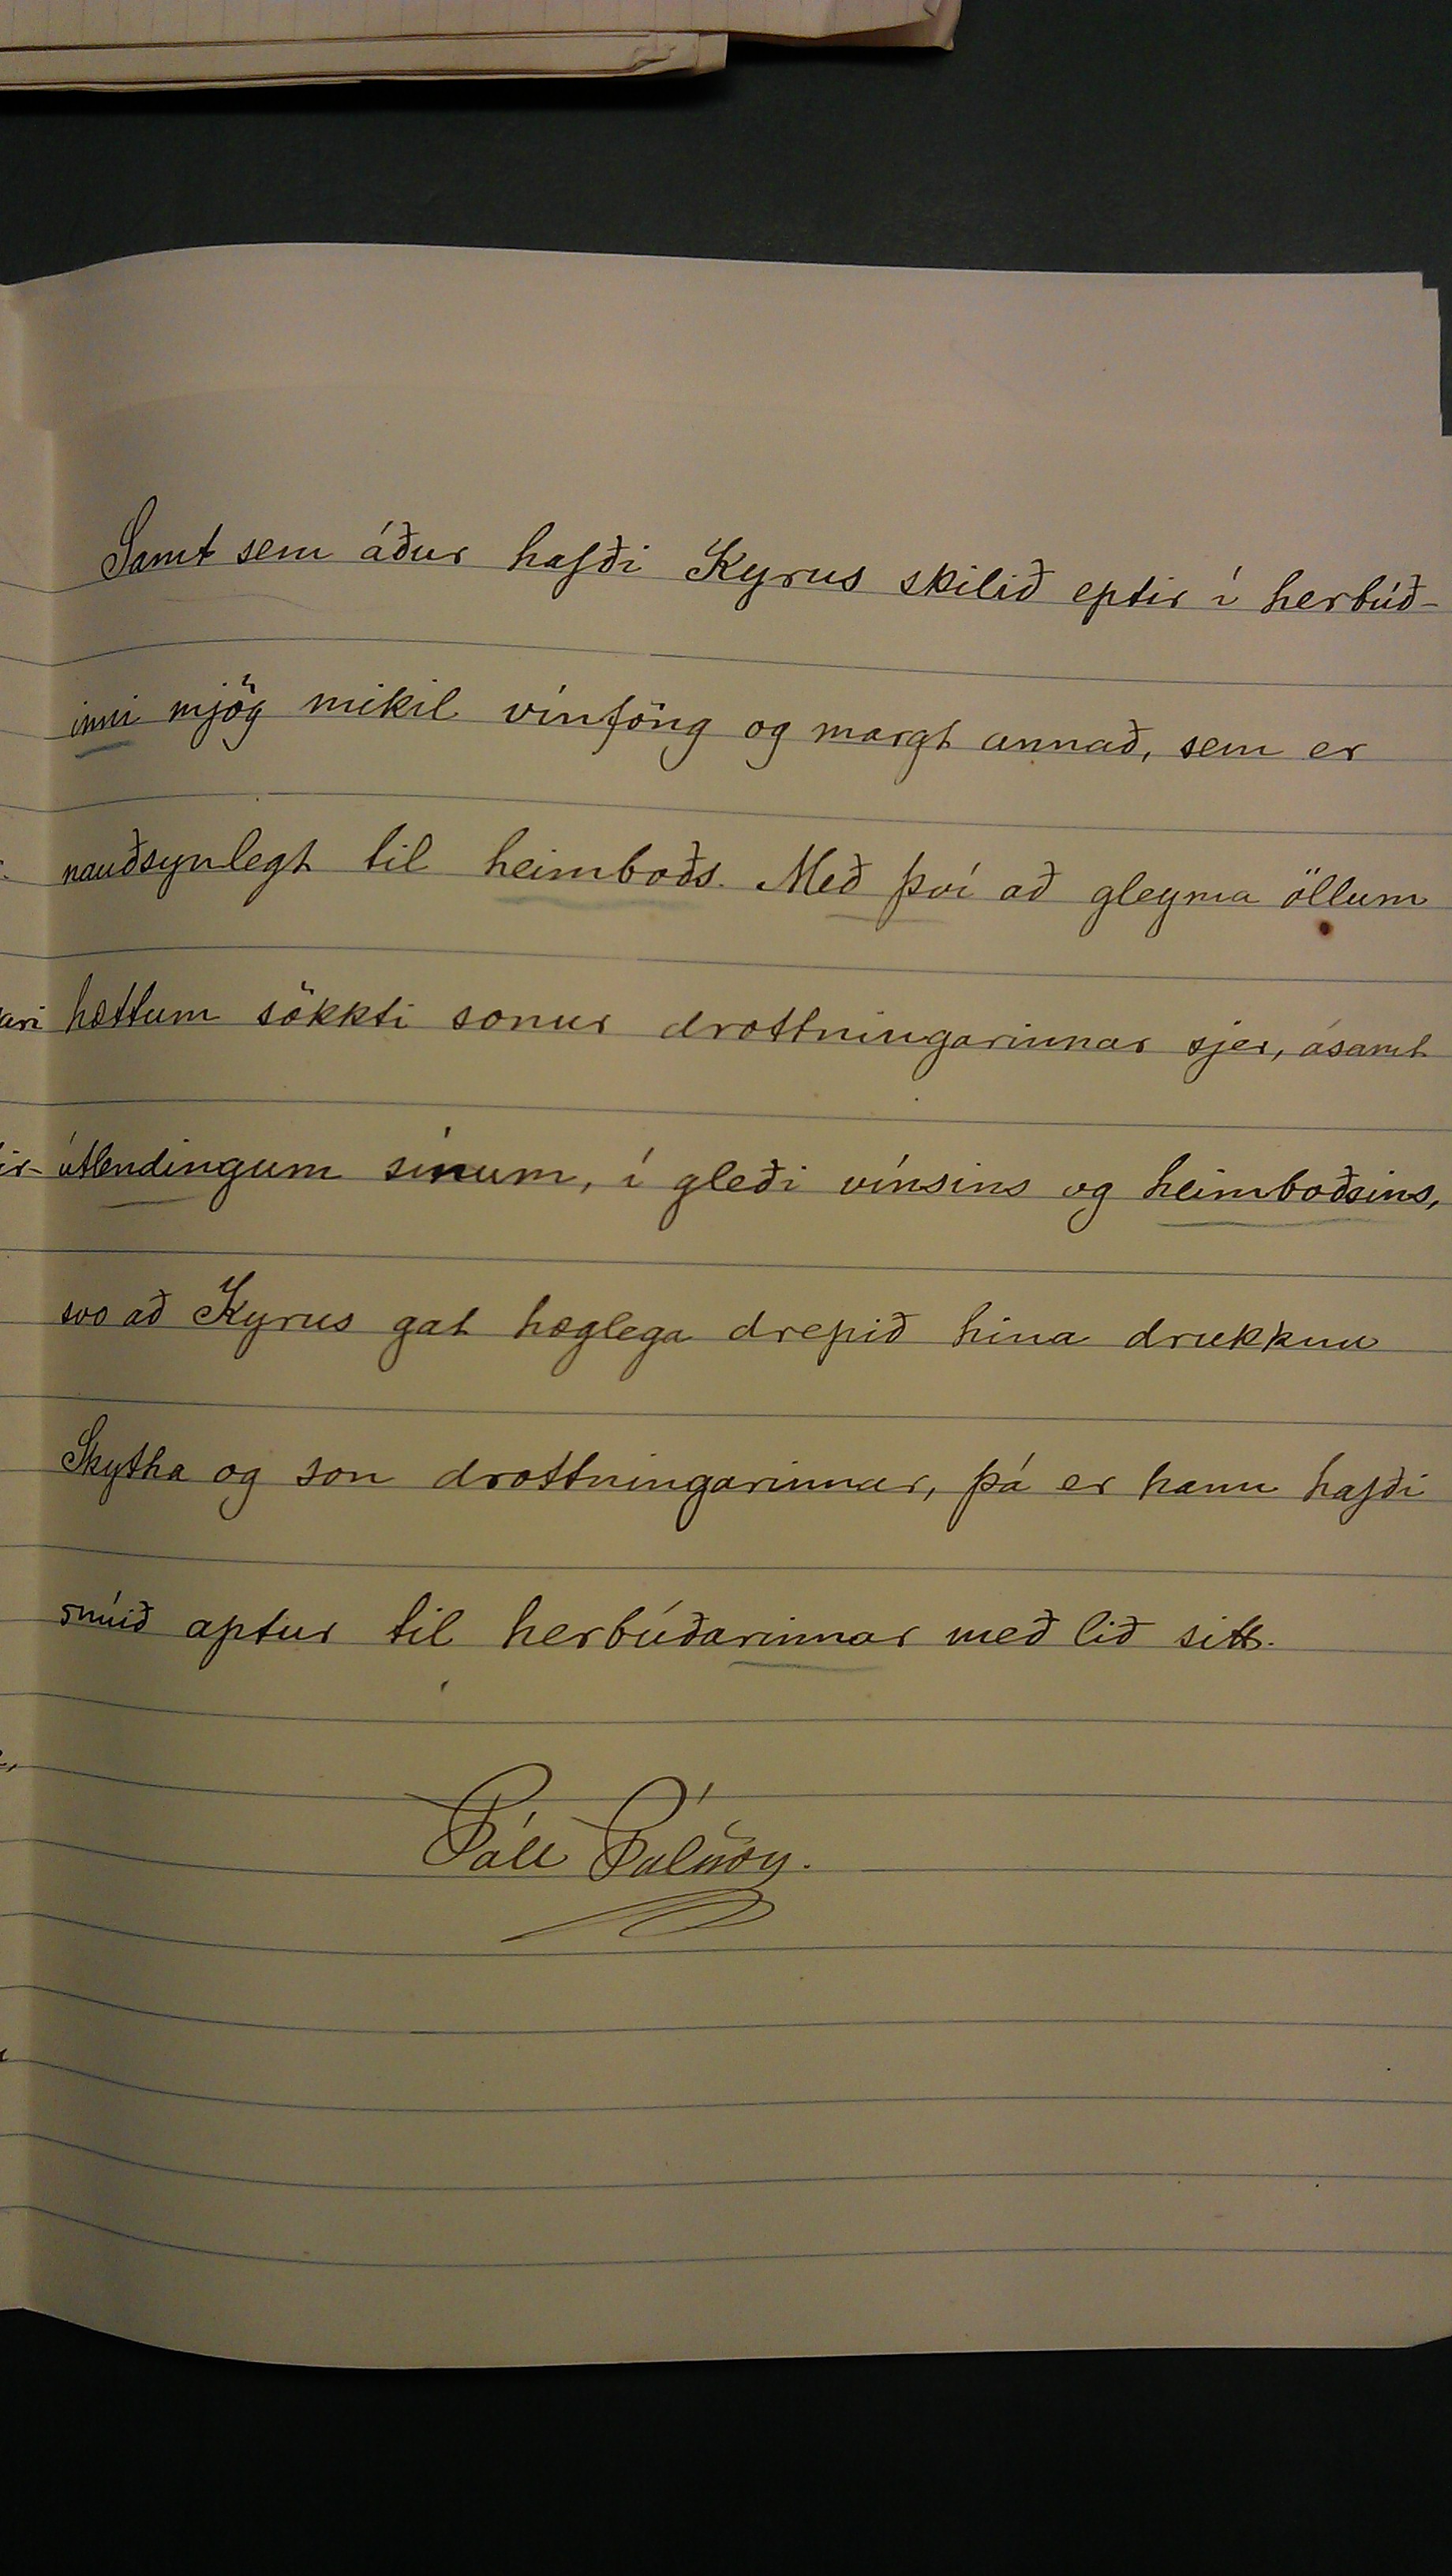 Samt sem áður hafði Kyrus skilið eptir í herbúð-
inni mjög mikil vínföng og margt annað, sem er
nauðsynlegt til heimboðs. Með því að gleyma öllum
hættum sökkti sonur drottningarinnar sjer, ásamt
útlendingum sínum, í gleði vínsins og heimboðsins,
svo að Kyrus gat hæglega drepið hina drukknu
Skytha og son drottningarinnar, þá er hann hafði
snúið aptur til herbúðarinnar með lið sitt.
Páll